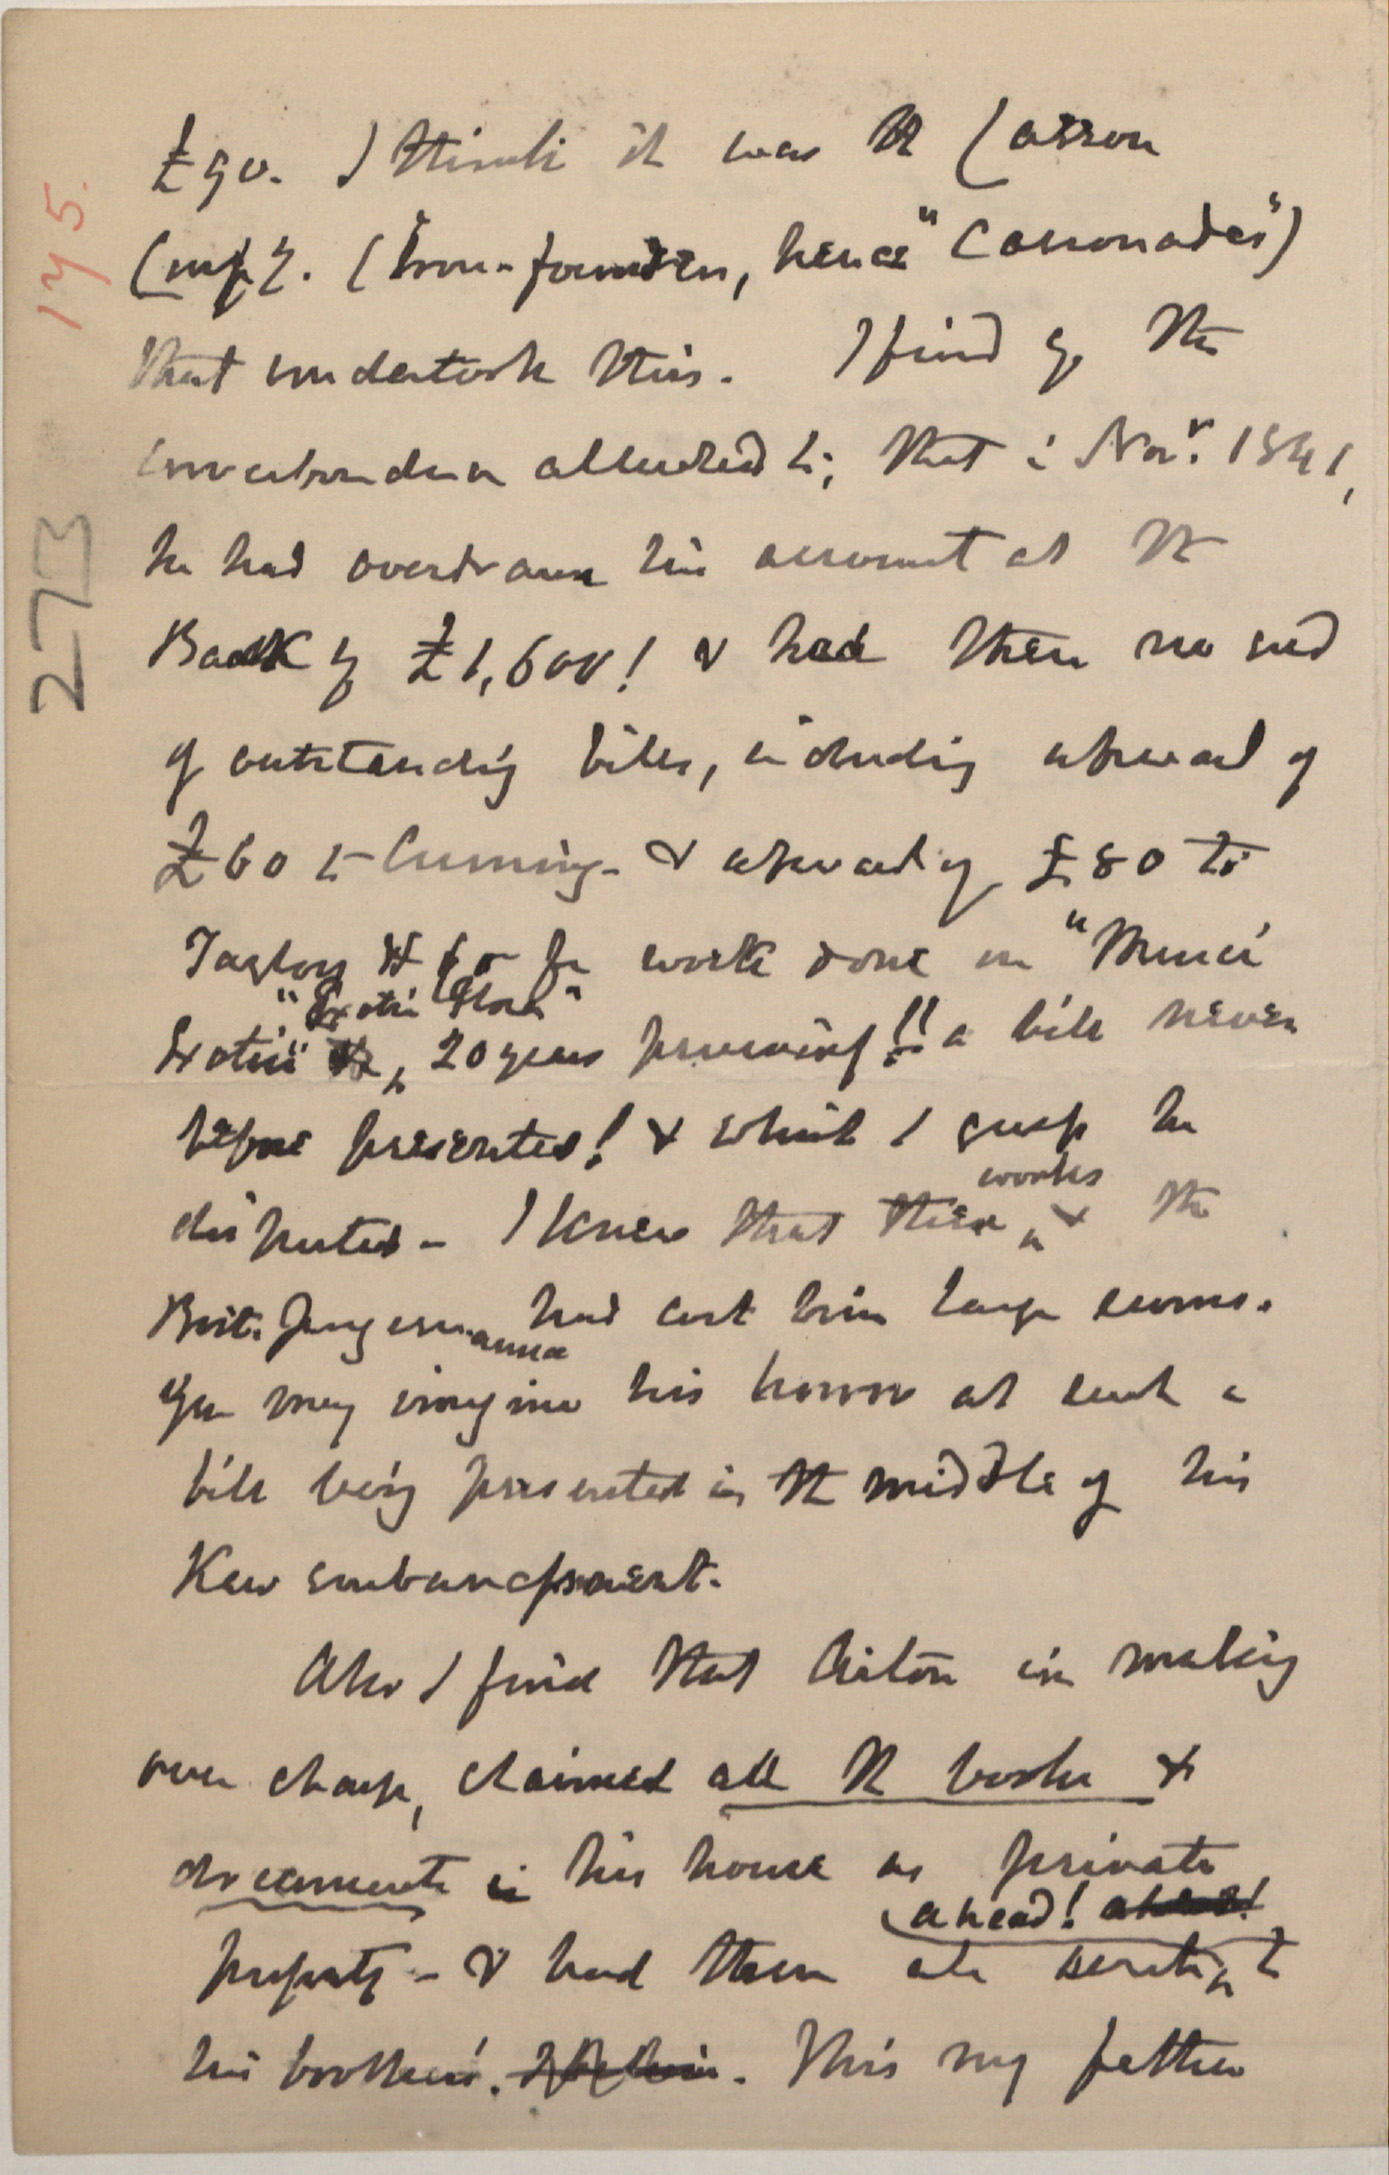 £90. I think it was the Carron
Comp^y. (Iron-founders, hence "Carronades")
that undertook this. I find by the
correspondence alluded to, that i Nov^r. 1841,
he had overdrawn his account at the
Bank by £1,600! & had then no end
of outstanding bills, including upward of
£60 to Cuming - & upward of £80 to
Taylor for work done on "Musci
"Exotic Flora"
Exotici" 20 years previously!! a bill never
before presented! & which I guess he
disputed - I knew that these
works
& the
Brit. Jungermannia had cost him large sums.
You may imagine his horror at such a
bill being presented in the middle of his
Kew embarassment.
Also I find that Aiton in making
over charge, claimed all the books &
documents in his house as private
ahead! ahead!
property - & had them all sent to
his brothers. This my father
175.
273